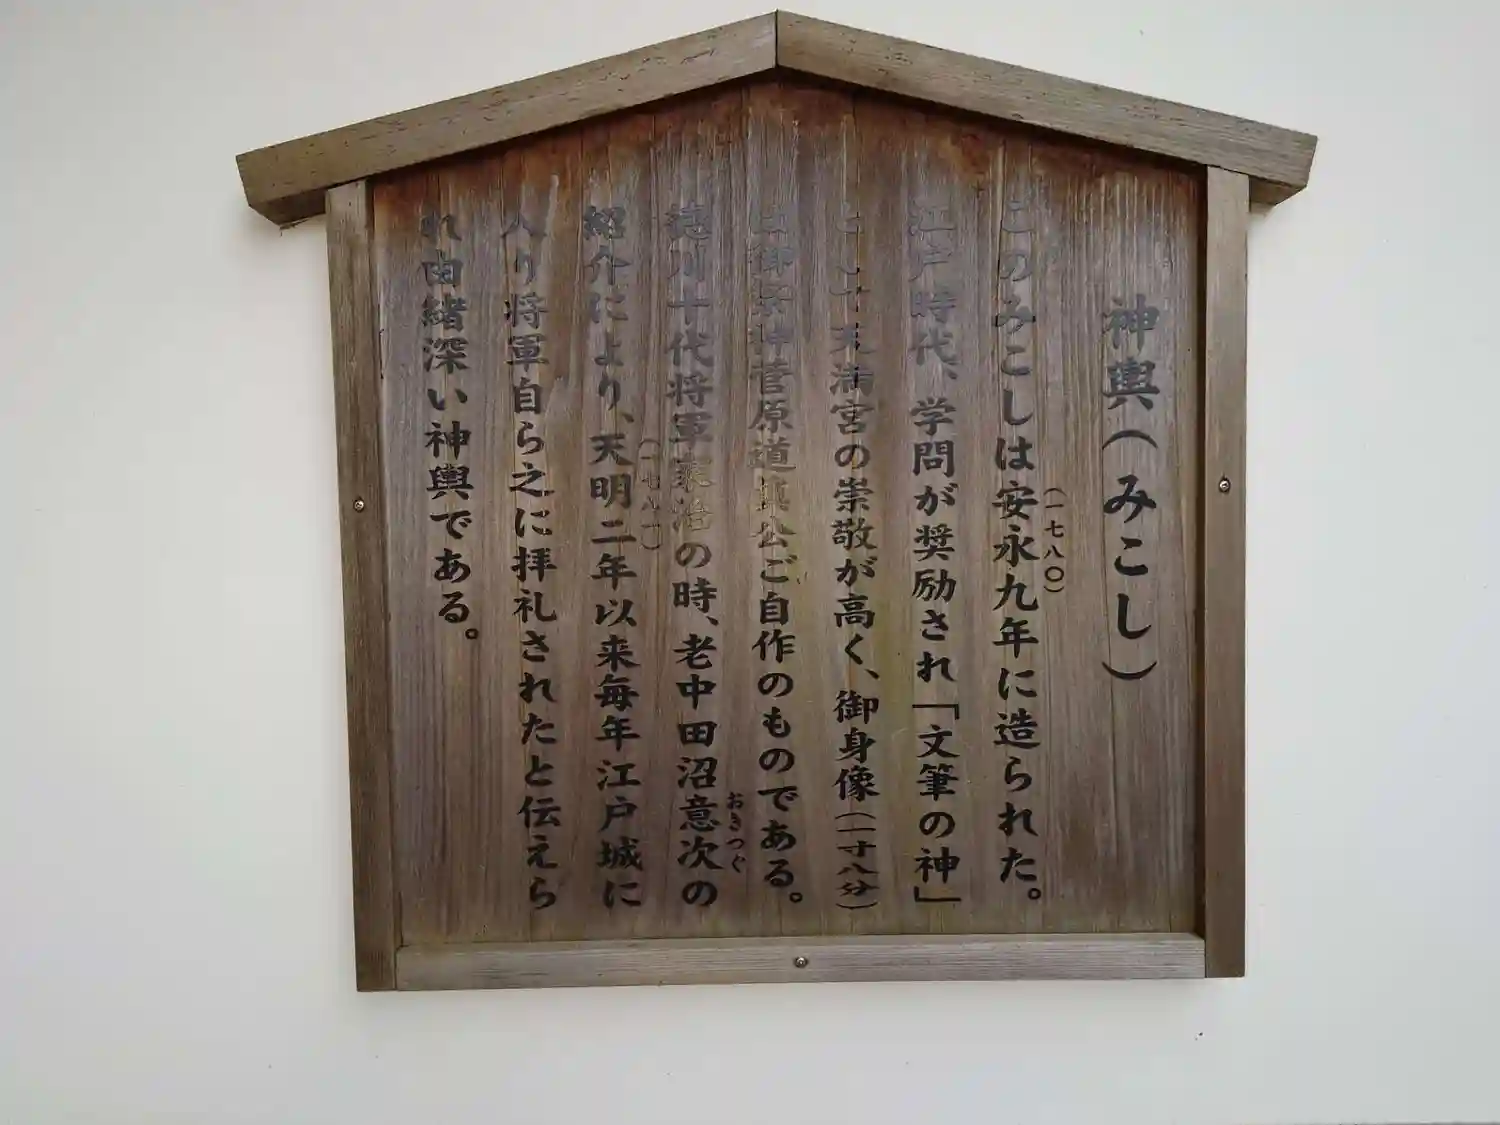 神輿(みこし)
このみこしは安永九年に造られた。
(一七八〇)
江戸時代、学問が奨励され「文筆の神」
として天満宮の崇敬が高く、御身像(一寸八分)
は御祭神菅原道真公ご自作のものである。
徳川十代将軍家治の時、老中田沼意次の
おきつぐ
紹介により、天明二年以来毎年江戸城に
(一七八一)
入り将軍自ら之に拝礼されたと伝えら
れ由緒深い神輿である。